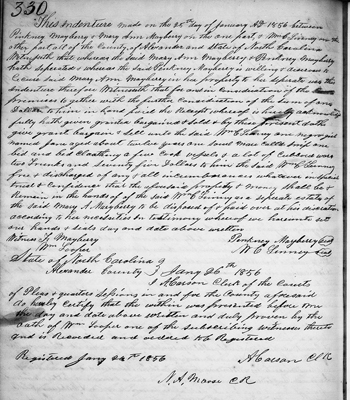 330
This Indenture made on the 25th day of January AD 1856 between
Pinkney Mayberry & Mary Ann Mayberry on the one part, & Wm C Linney on the
other part all of the County of Alexander and State of North Carolina
Witnesseth that whereas the said Mary Ann Mayberry & Pinkney Mayberry
hath Seperated & whereas the said Pinkney Mayberry is willing & desirous to
secure said Mary Ann Mayberry in her property to her Seperate use this
indenture therefore Witnesseth that for and in Consideration of the
premises together with the further Consideration of the Sum of one
dollar to him in hand paid the Receipt whereof is hereby acknowledged
fully hath granted bargained & Sold & by these presents doth
give grant bargain & Sell unto the said Wm C Linney one negro girl
named Jane aged about twelve years one Sound mare Cattle Sheep one
bed and bed Clothing a fine Cook vessels a lot of Cubbord ware
two Trunks and Seventy five Dollars to him the said Wm C Linney
free & discharged of any & all incumbrances whatever in special
trust & Confidence that the aforesaid property & money Shall be &
Remain in the hands of the said Wm C Linney as a Seperate estate of
the said Mary A Mayberry to be disposed of & paid over at his discretion
according to her necesities In testimony whereof we hereunto set
our hands & seals day and date above written
Witness J Mayberry
Pinkney Mayberry Seal
Wm Cooper
W C Linney Seal
State of North Carolina
Alexander County Jany 26th 1856
I A Carson Clerk of the Courts
of Pleas & quarters Sessions in and for the County aforesaid
do hereby Certify that the within was presented before Me
the day and date above written and duly proven by the
oath of Wm Cooper one of the Subscribing witnesses thereto
and is Recorded and ordered to be Registered
Registered Jany 26th 1856
A Carson Clk
N. A. Moose CR